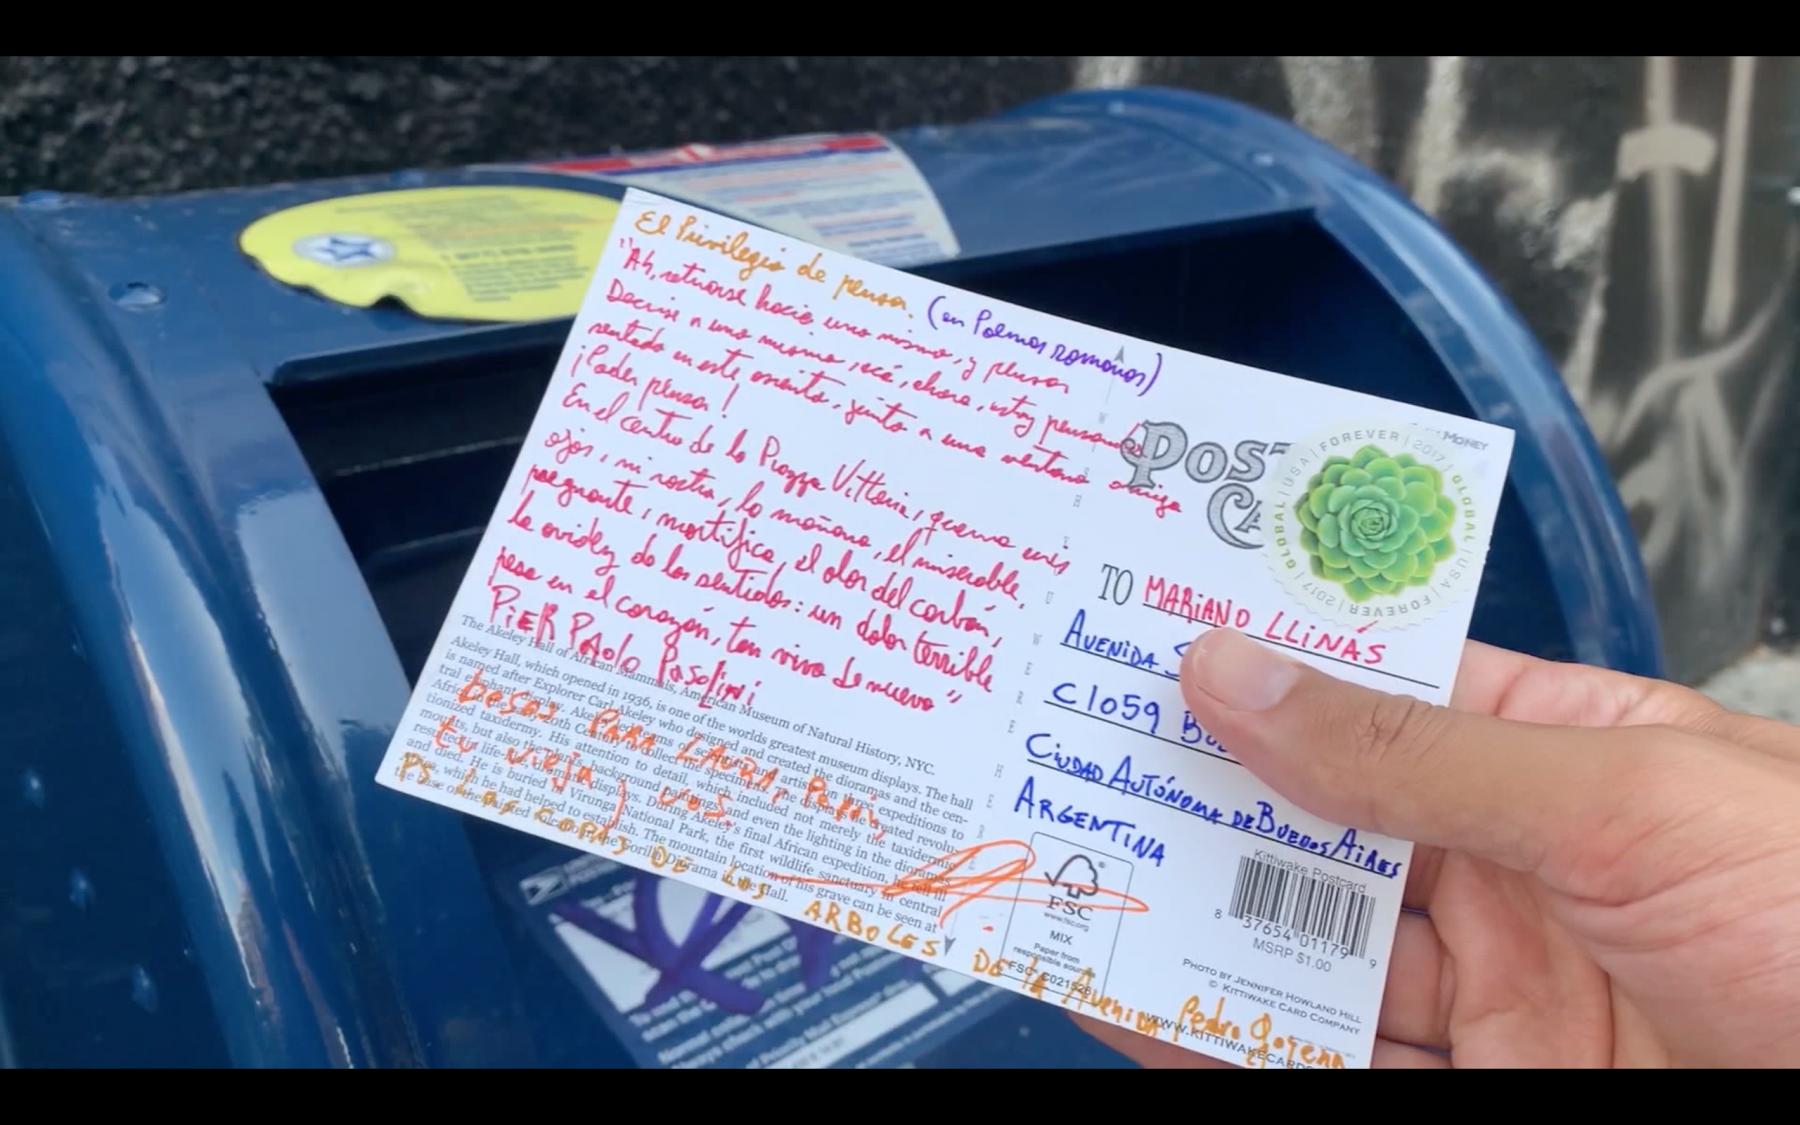 El Privilegio de pensar. (en Poemas romanos)
"Ah, retirarse hacia uno mismo, y pensar
Decirse a uno mismo, acá, ahora, estoy pensando
sentado en este asiento, junto a una ventana amiga
¡Poder pensar!
En el centro de la Piazza Vittoria, quema mis
ojos, mi rostro, la mañana, el miserable,
pregnante, mortifica, el olor del carbón,
la avidez de los sentidos: un dolor terrible
pesa en el corazón, tan vivo de nuevo"
PiER PAolo PAsolini
The Akeley Hall of African Mammals, American Museum of Natural History, NYC.
Akeley Hall, which opened in 1936, is one of the worlds greatest museum displays. The hall
is named after Explorer Carl Akeley who designed and created the dioramas and the cen-
tral elephant display. Akeley led teams of scientists and artists on three expeditions to
Africa in the early 20th Century to collect the specimens. The displays he created revolu-
tionized taxidermy. His attention to detail, which included not merely the taxidermic
mounts, but also the plants, background paintings and even the lighting in the dioramas
resulted in life-like, dramatic displays. During Akeley's final African expedition, he fell ill
and died. He is buried in Virunga National Park, the first wildlife sanctuary in central
Africa, which he had helped to establish. The mountain location of his grave can be seen at
the base of the painted volcano in the Gorilla Diorama in the hall.
besos PARA LAURA,
tu vieja y vos.
PS: LAS COPAS DE LOS ARBOLES DE LA Avenida
POST
TO MARiANO LLiNÁS
AVENiDA
C1059
CiUDAD AUTÓNOMA DE BUENOS AiRES
ARGENTiNA
GLOBAL | USA | FOREVER | 2017 | GLOBAL | USA | FOREVER | 2017
FSC
www.fsc.org
MIX
Paper from
responsible sources
Kittiwake Postcard
8 37654 01179 9
MSRP $1.00
PHOTO BY JENNIFER HOWLAND HILL
© KITTIWAKE CARD COMPANY
WWW.KITTIWAKECARDS
Pedro